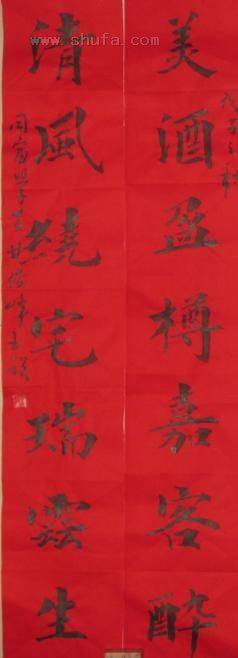 www.shufa.com
美酒盈樽嘉客醉
戊子之秋
清風繞宅瑞雲生